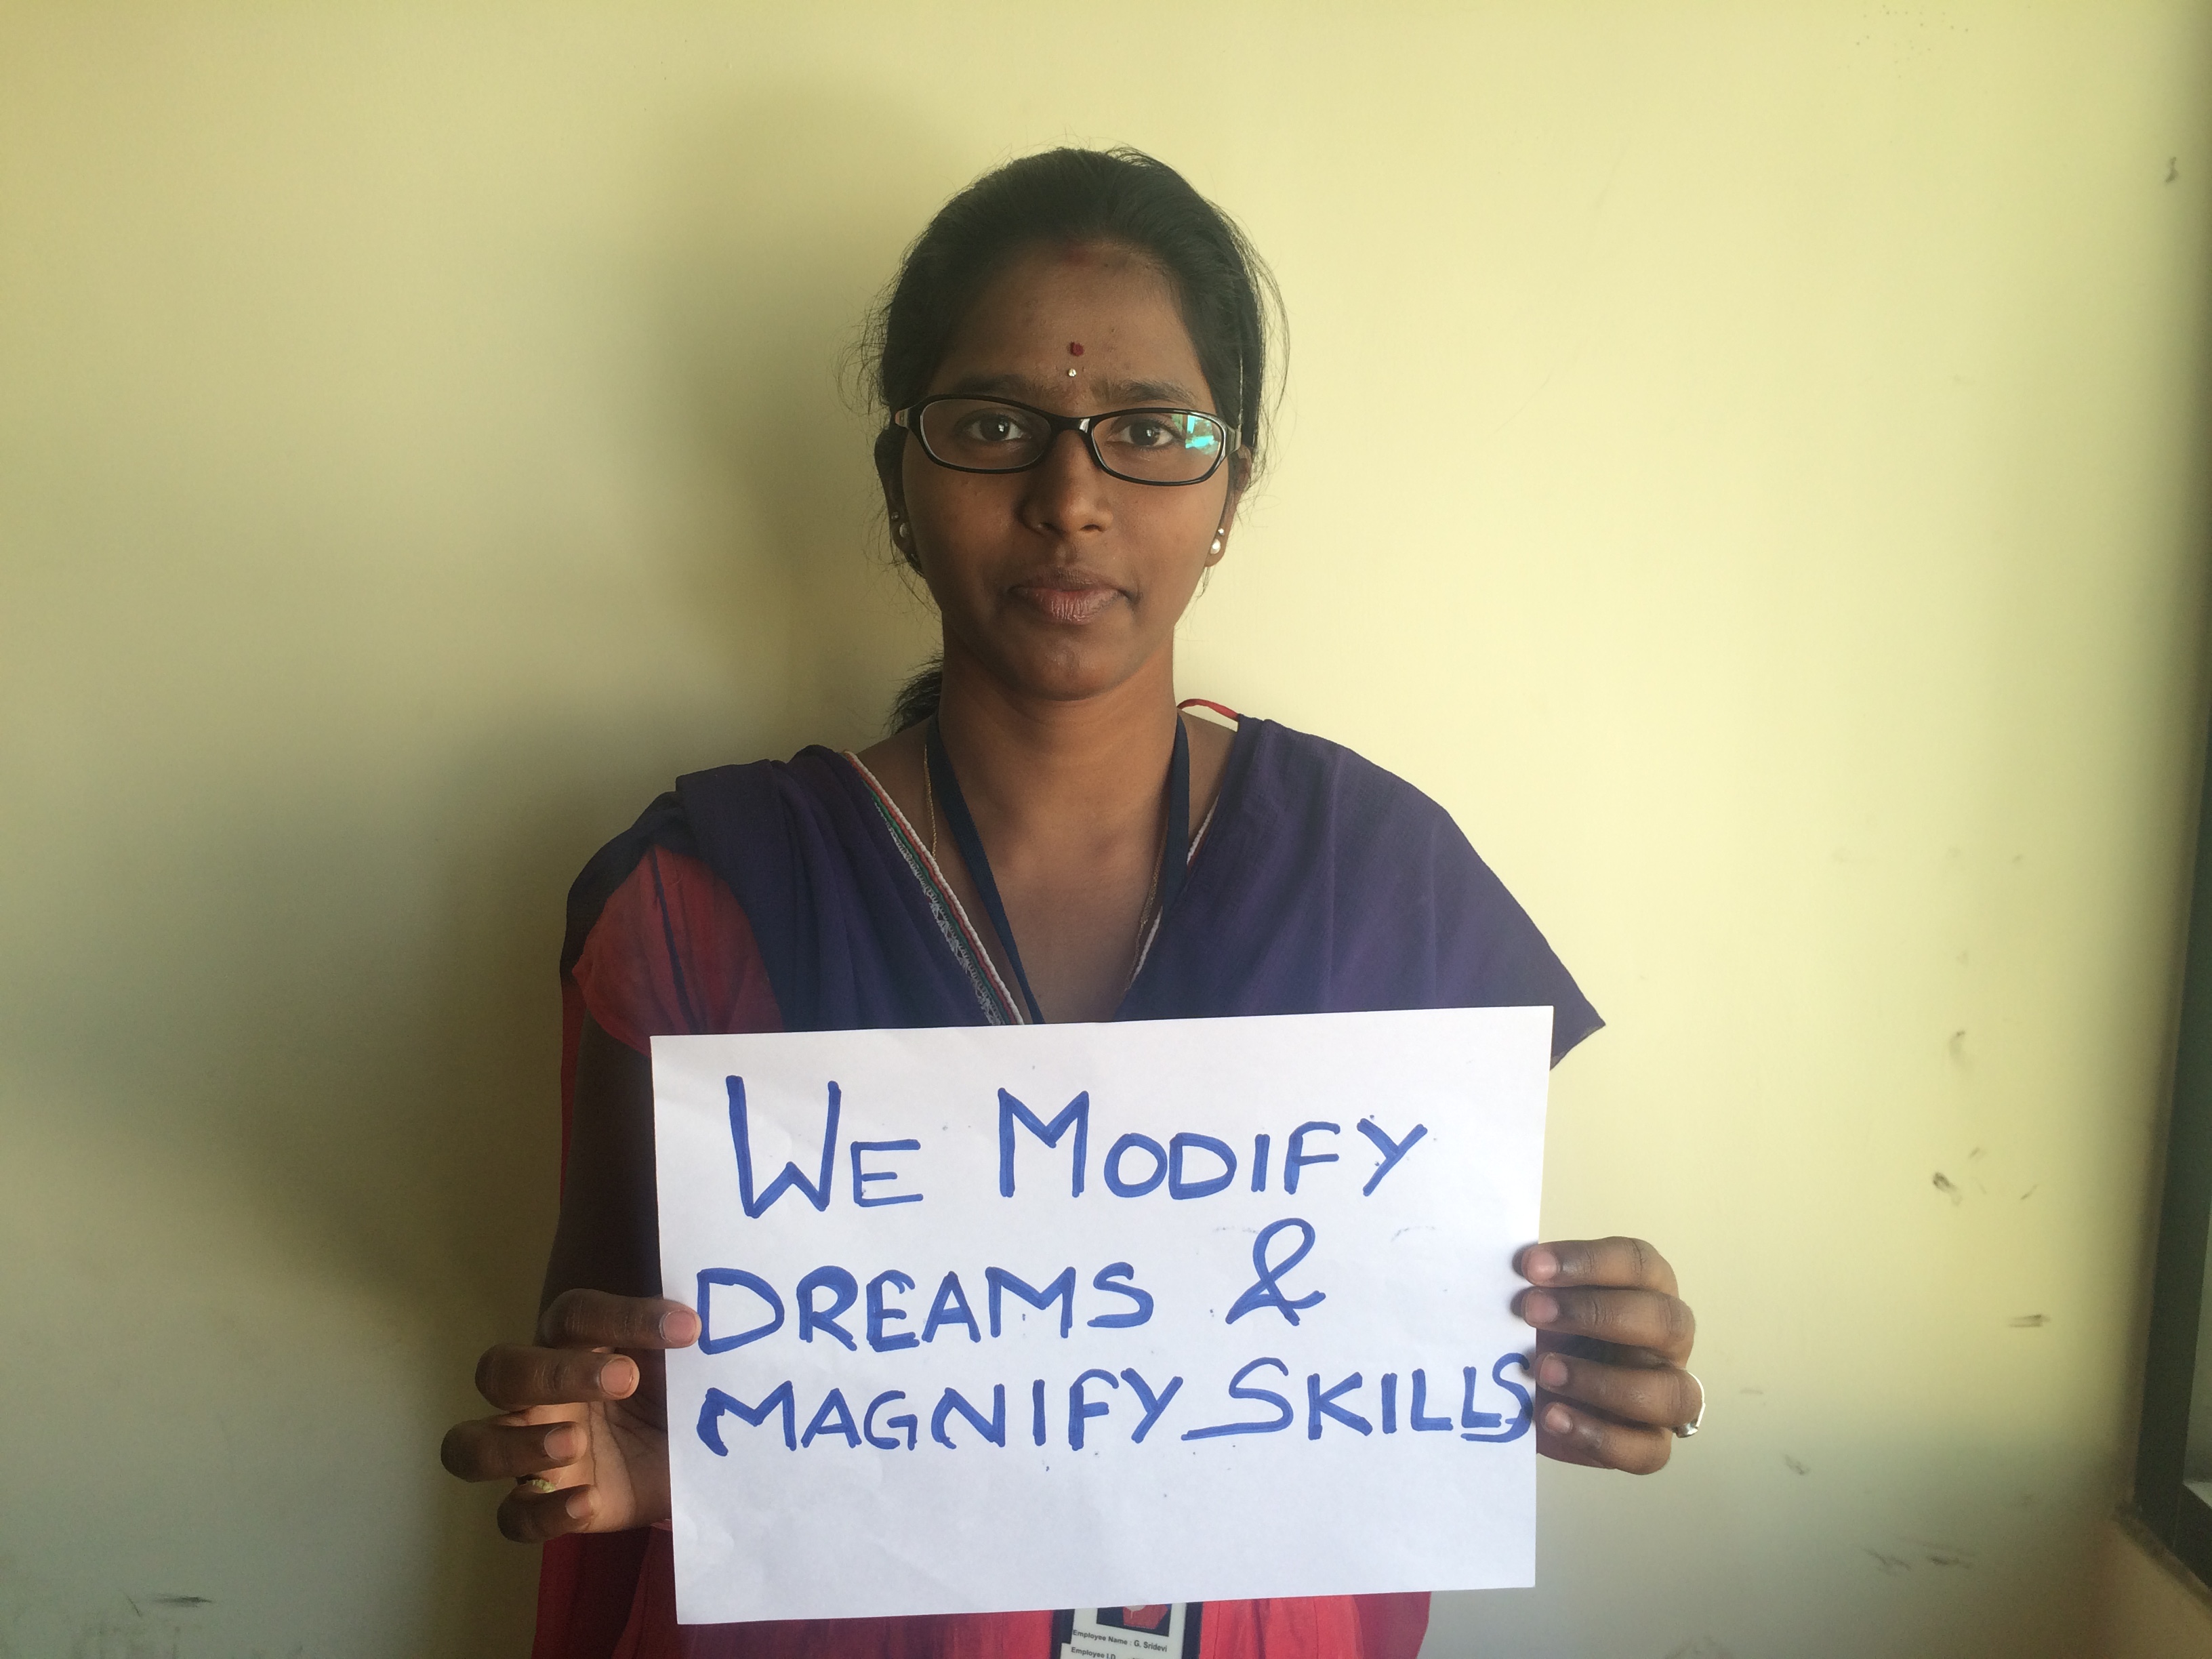 WE MODIFY
DREAMS &
MAGNIFY SKILLS
Employee Name : G. Sridevi
Employee I.D